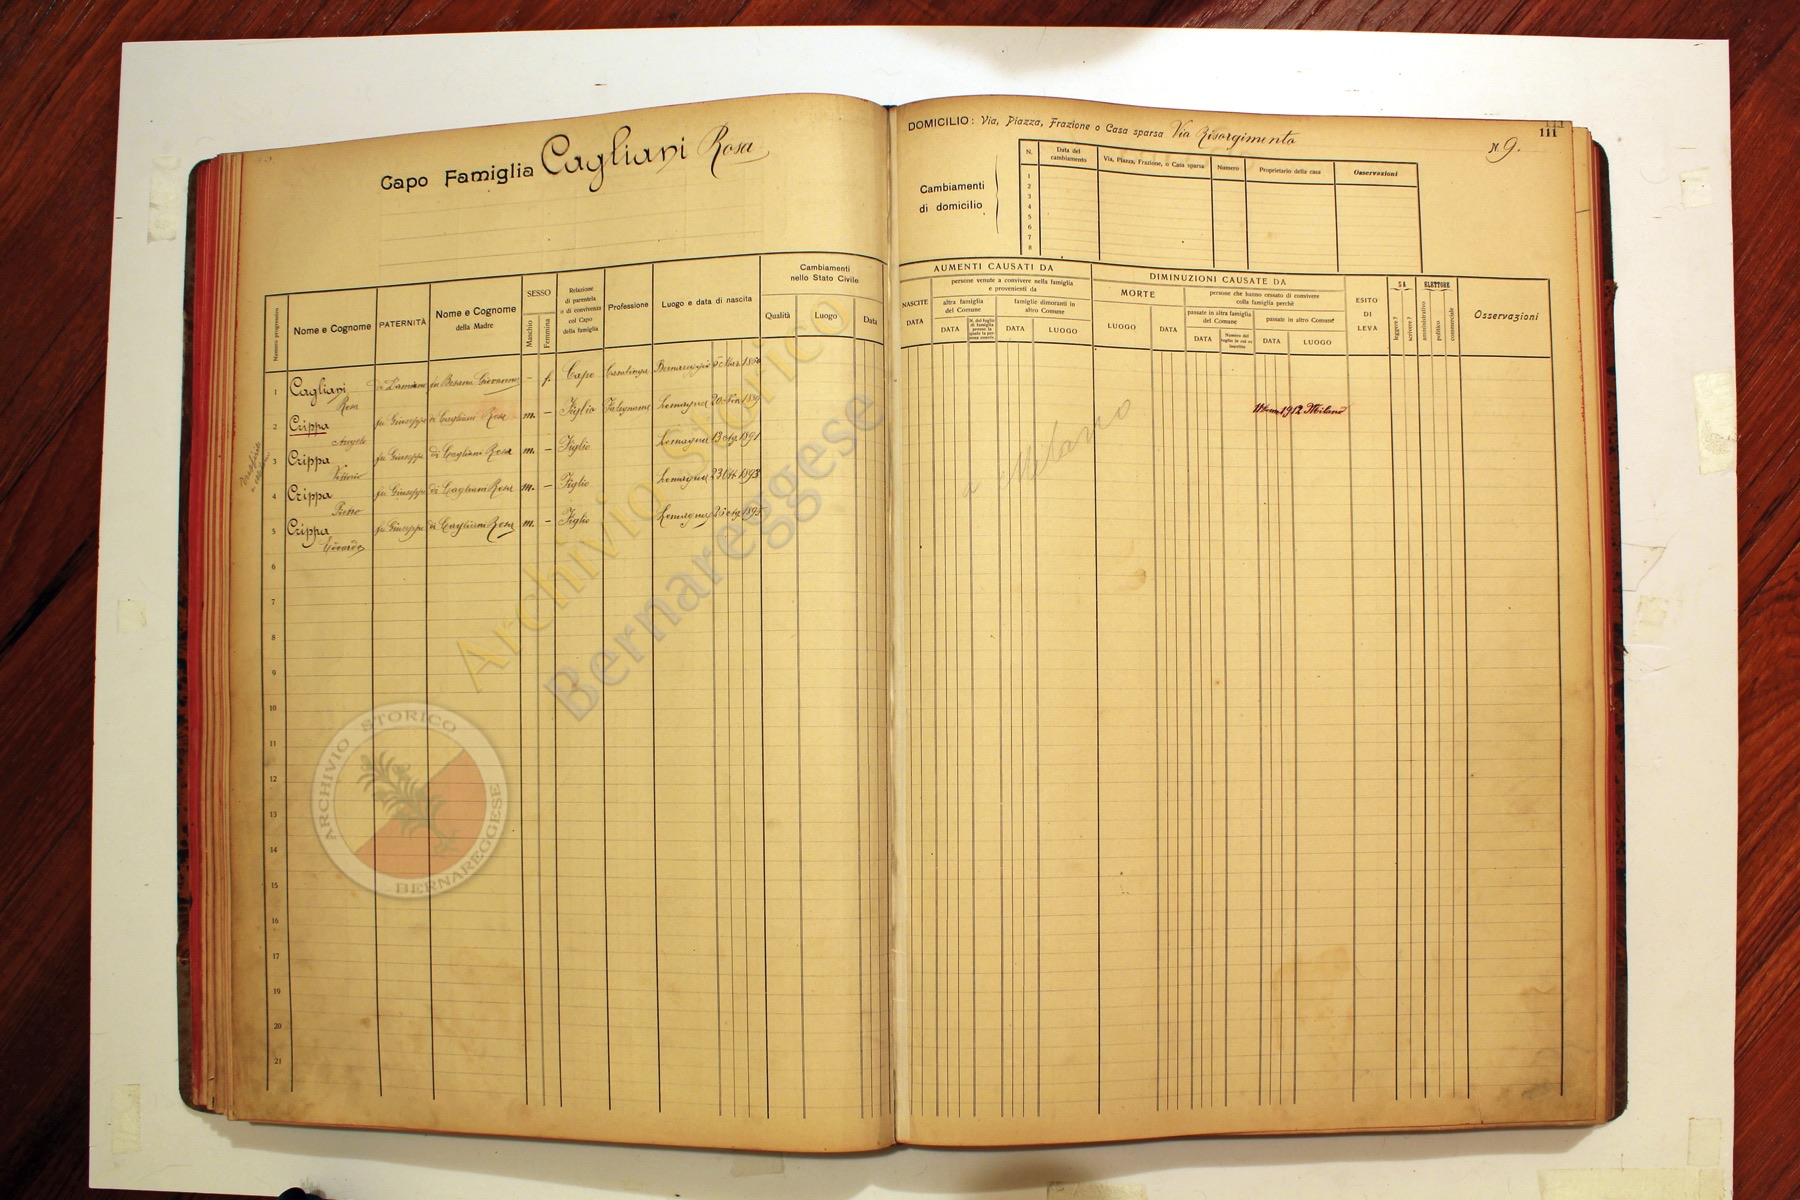 Capo Famiglia Cagliani Rosa
DOMICILIO: Via, Piazza, Frazione o Casa sparsa Via Risorgimento
N 9.
111
Cambiamenti
di domicilio
N.
Data del
cambiamento
Via, Piazza, Frazione, o Casa sparsa
Numero
Proprietario della casa
Osservazioni
1
2
3
4
5
6
7
8
Numero progressivo
Nome e Cognome
PATERNITÀ
Nome e Cognome
della Madre
SESSO
Maschio
Femmina
Relazione
di parentela
o di convivenza
col Capo
della famiglia
Professione
Luogo e data di nascita
Cambiamenti
nello Stato Civile
Qualità
Luogo
Data
AUMENTI CAUSATI DA
NASCITE
DATA
persone venute a convivere nella famiglia
e provenienti da
altra famiglia
del Comune
DATA
famiglie dimoranti in
altro Comune
DATA
LUOGO
DIMINUZIONI CAUSATE DA
MORTE
LUOGO
DATA
persone che hanno cessato di convivere
colla famiglia perchè
passate in altra famiglia
del Comune
DATA
passate in altro Comune
DATA
LUOGO
ESITO
DI
LEVA
SA
leggere?
scrivere?
ELETTORE
amministrativo
politico
commerciale
Osservazioni
1 Cagliani di Damiano fu Besana Giovanna - f. Capo Casalinga Bernareggio
Rosa
2 Crippa fu Giuseppe di Cagliani Rosa m. - Figlio Falegname Lomagna 1912 Milano
Angelo
3 Crippa fu Giuseppe di Cagliani Rosa m. - Figlio Lomagna 1891
Vittorio
4 Crippa fu Giuseppe di Cagliani Rosa m. - Figlio Lomagna 23 1893
Pietro
5 Crippa fu Giuseppe di Cagliani Rosa m. - Figlio Lomagna 1895
a Milano
6
7
8
9
10
11
12
13
14
15
16
17
19
20
21
Archivio Storico
Bernareggese
ARCHIVIO STORICO
BERNAREGGESE